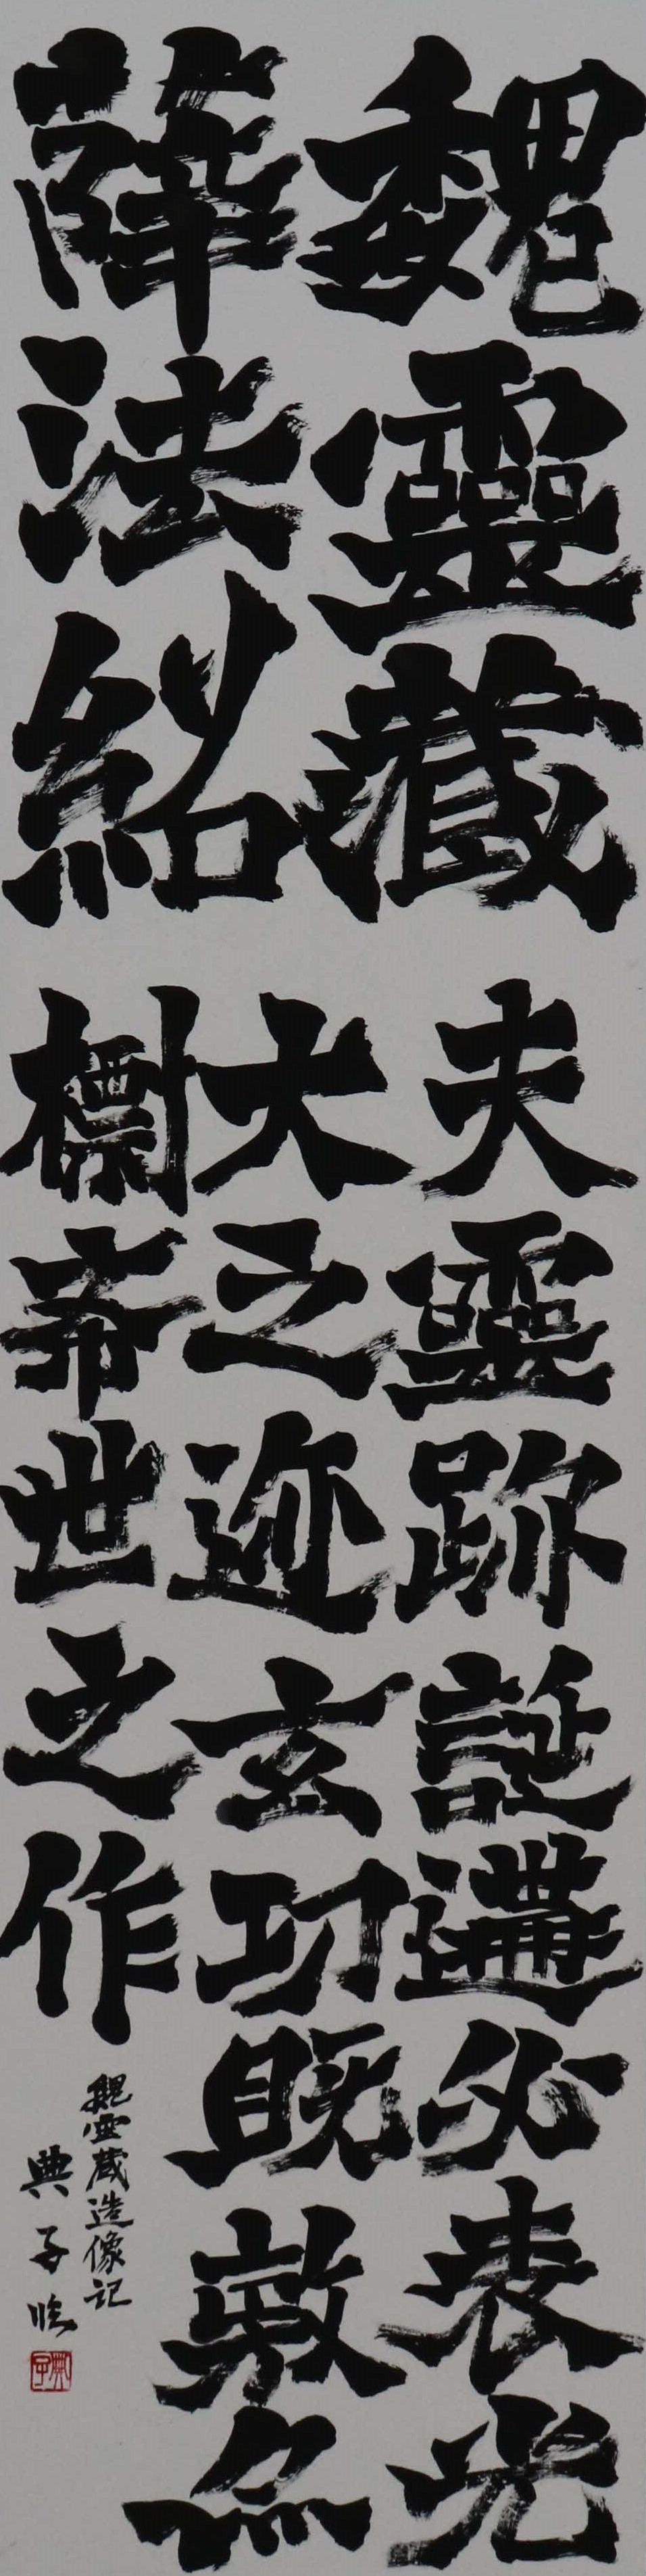 魏靈藏
薛法紹
夫靈跡誕遘必表光
大之迹玄功既敷亦
標希世之作
魏霊蔵造像記
典子臨
典子